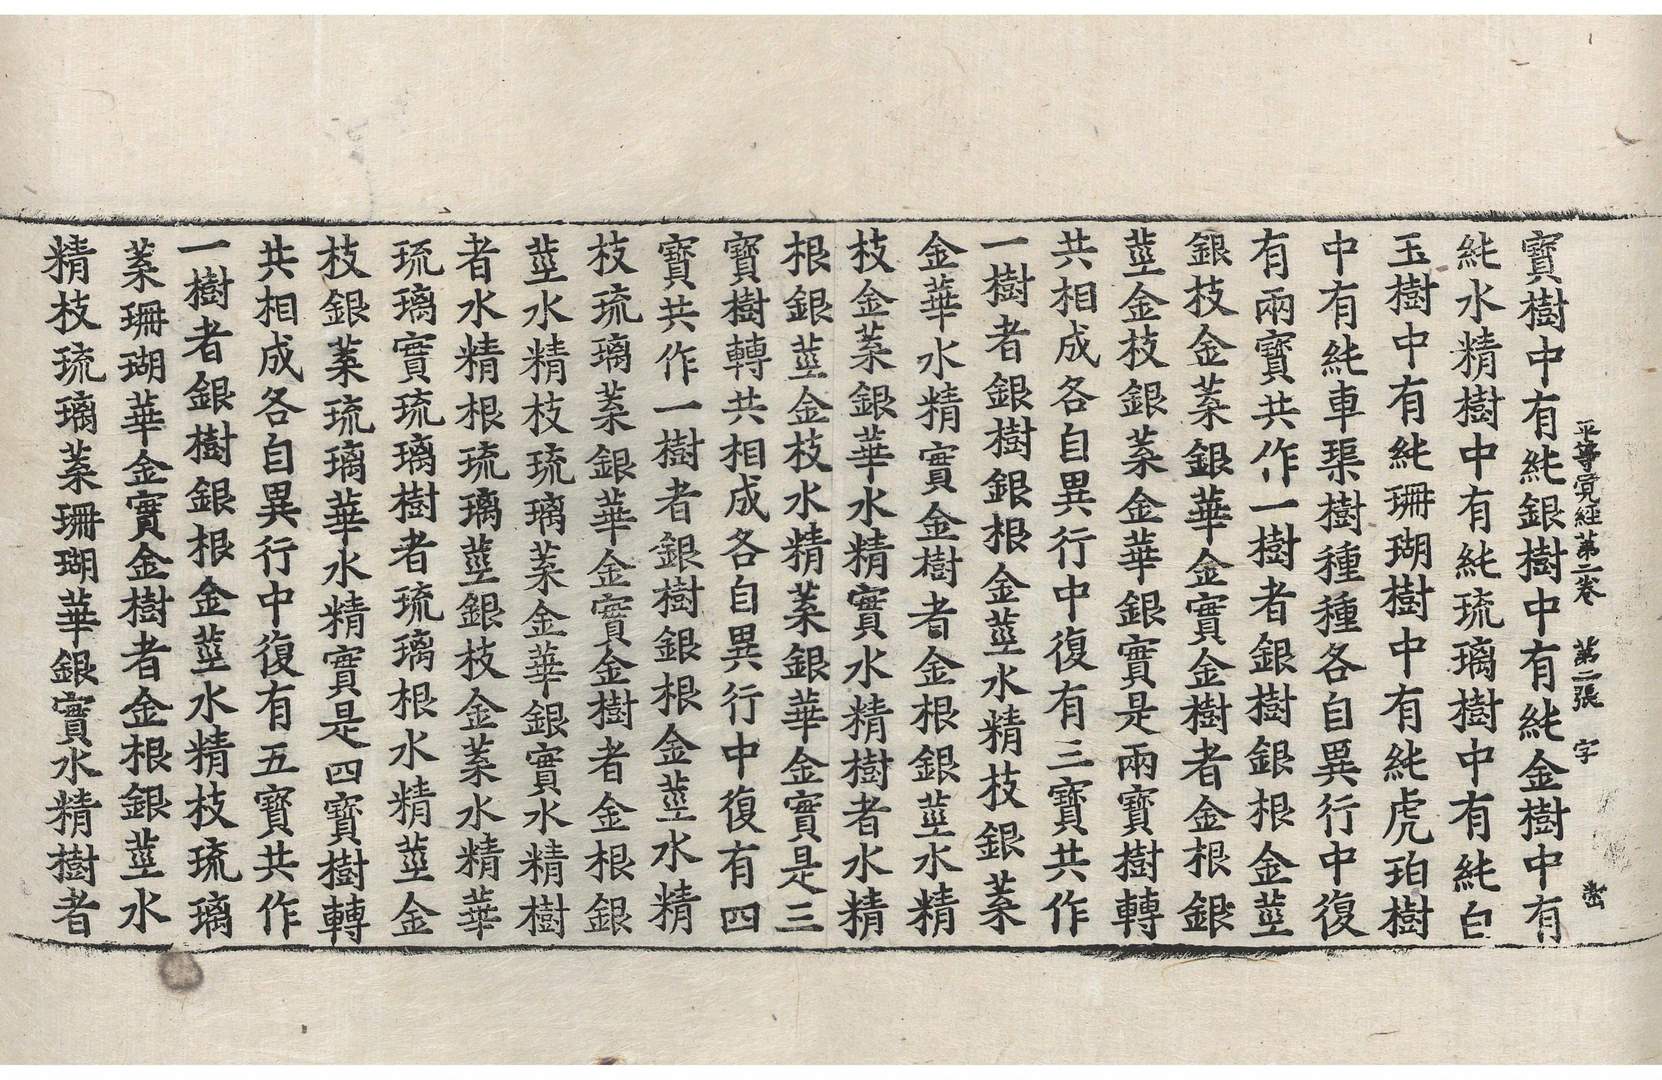 平等覺經第二卷 第二張 字
寶樹中有純銀樹中有純金樹中有
純水精樹中有純琉璃樹中有純白
玉樹中有純珊瑚樹中有純虎珀樹
中有純車渠樹種種各自異行中復
有兩寶共作一樹者銀樹銀根金莖
銀枝金葉銀華金實金樹者金根銀
莖金枝銀葉金華銀實是兩寶樹轉
共相成各自異行中復有三寶共作
一樹者銀樹銀根金莖水精枝銀葉
金華水精實金樹者金根銀莖水精
枝金葉銀華水精實水精樹者水精
根銀莖金枝水精葉銀華金實是三
寶樹轉共相成各自異行中復有四
寶共作一樹者銀樹銀根金莖水精
枝琉璃葉銀華金實金樹者金根銀
莖水精枝琉璃葉金華銀實水精樹
者水精根琉璃莖銀枝金葉水精華
琉璃實琉璃樹者琉璃根水精莖金
枝銀葉琉璃華水精實是四寶樹轉
共相成各自異行中復有五寶共作
一樹者銀樹銀根金莖水精枝琉璃
葉珊瑚華金實金樹者金根銀莖水
精枝琉璃葉珊瑚華銀實水精樹者